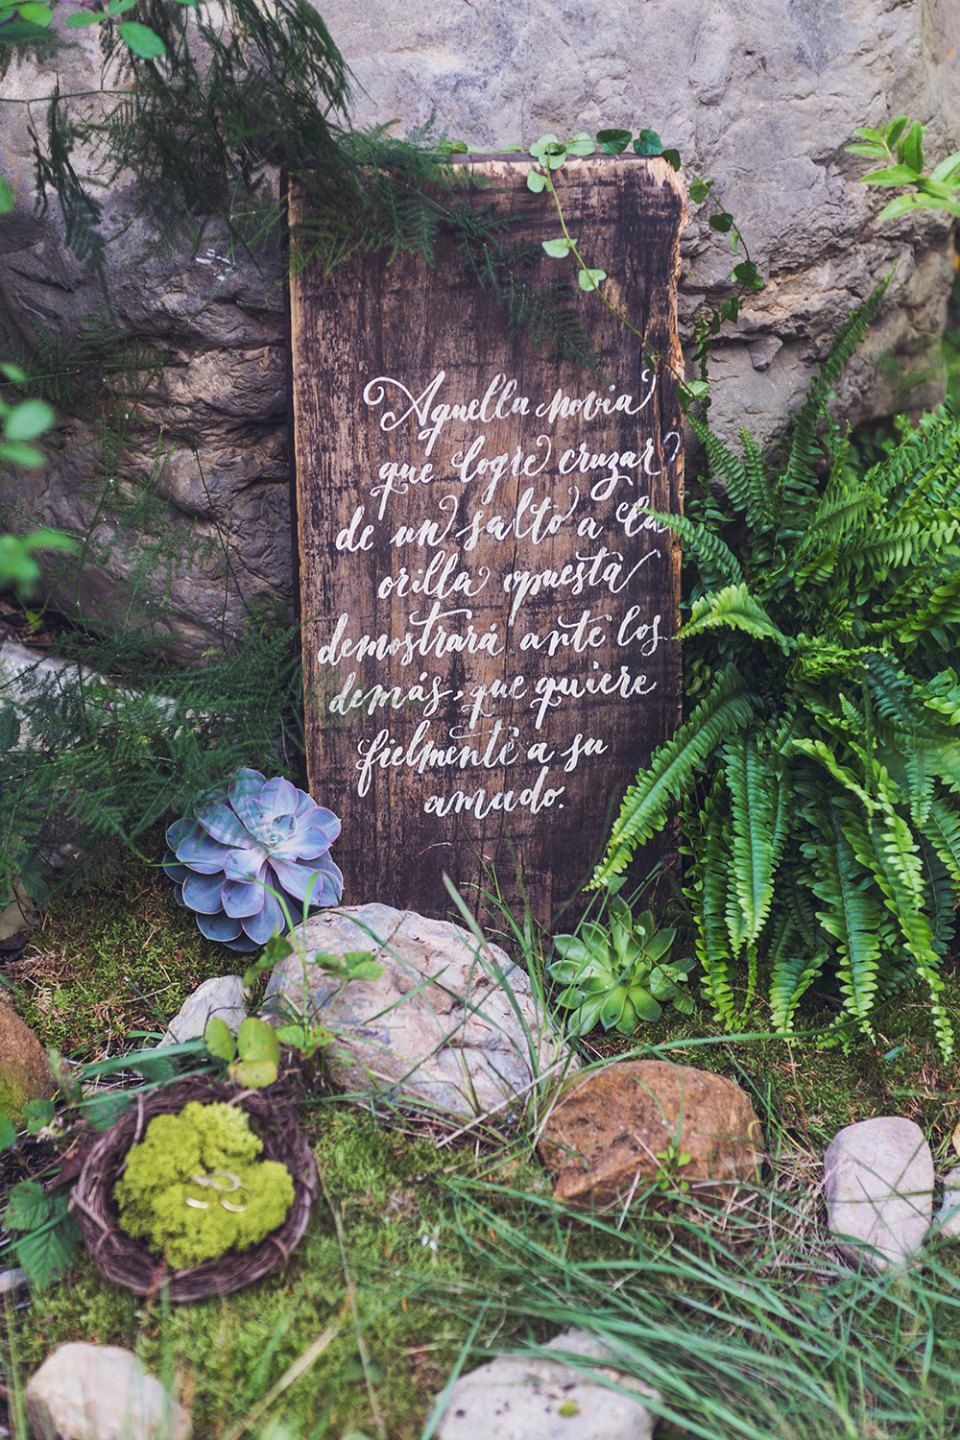 Aquella novia
que logre cruzar
de un salto a la
orilla opuesta
demostrará ante los
demás, que quiere
fielmente a su
amado.